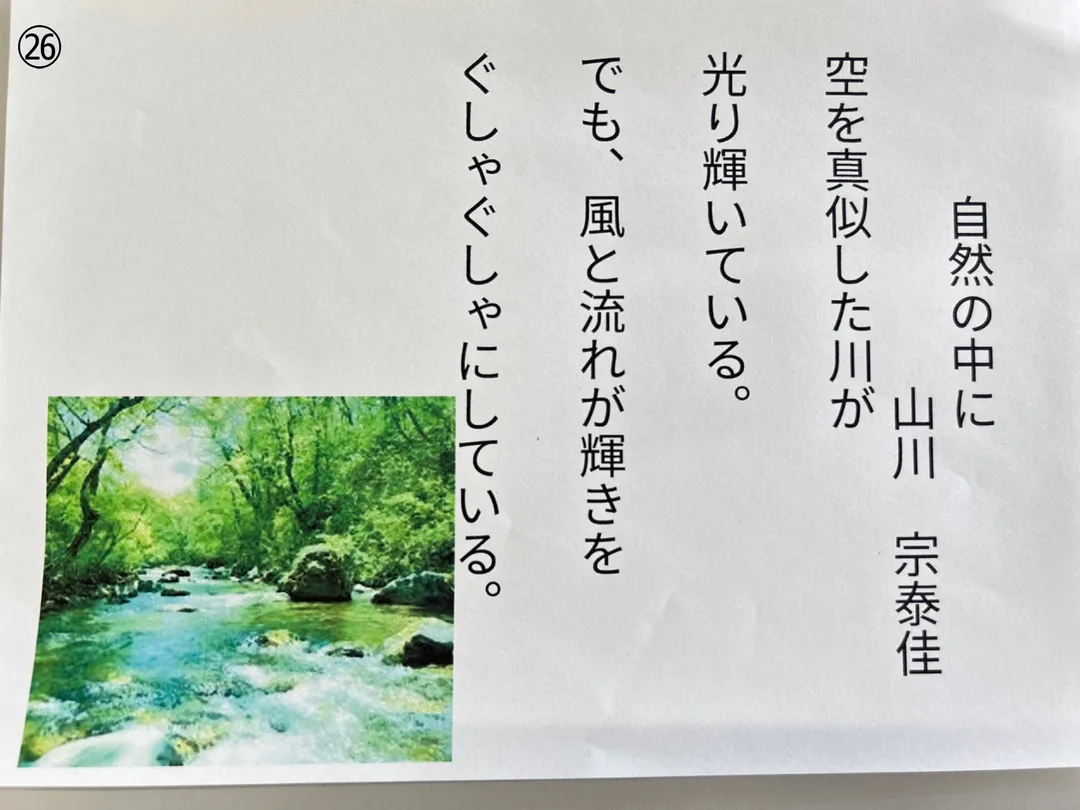 ㉖
自然の中に
山川　宗泰佳
空を真似した川が
光り輝いている。
でも、風と流れが輝きを
ぐしゃぐしゃにしている。